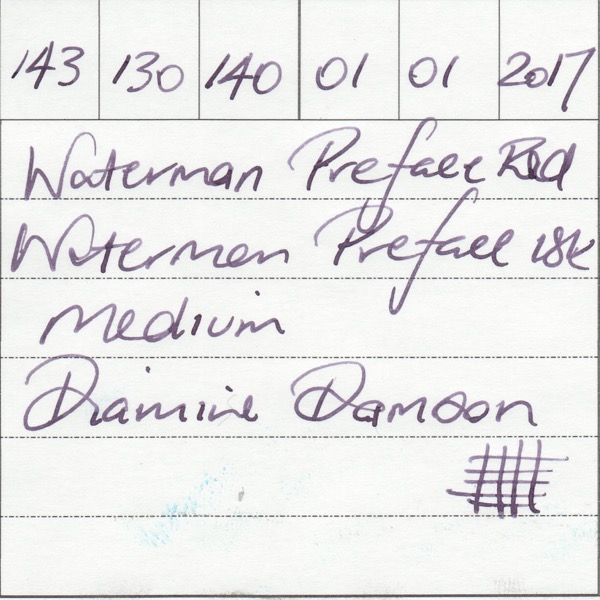 143 130 140 01 01 2017
Waterman Preface Red
Waterman Preface 18k
Medium
Diamine Damson